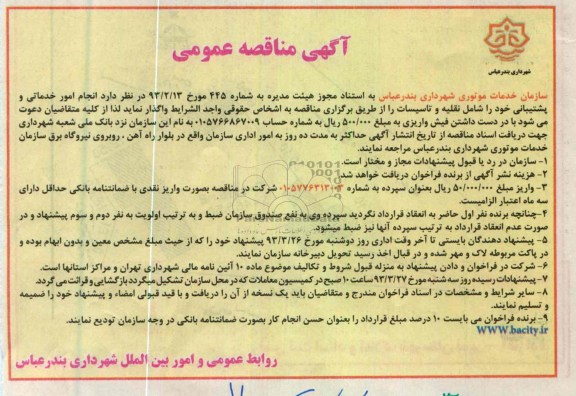 شهرداری بندرعباس
آگهی مناقصه عمومی
سازمان خدمات موتوری شهرداری بندرعباس به استناد مجوز هیئت مدیره به شماره ۴۴۵ مورخ ۹۳/۲/۱۳ در نظر دارد انجام امور خدماتی و
پشتیبانی خود را شامل نقلیه و تاسیسات را از طریق برگزاری مناقصه به اشخاص حقوقی واجد الشرایط واگذار نماید لذا از کلیه متقاضیان دعوت
می شود با در دست داشتن فیش واریزی به مبلغ ۵۰۰/۰۰۰ ریال به شماره حساب ۰۱۰۵۷۶۶۸۶۷۰۰۹ به نام این سازمان نزد بانک ملی شعبه شهرداری
جهت دریافت اسناد مناقصه از تاریخ انتشار آگهی حداکثر به مدت ده روز به امور اداری سازمان واقع در بلوار راه آهن ، روبروی نیروگاه برق سازمان
خدمات موتوری شهرداری بندرعباس مراجعه نمایند.
۱- سازمان در رد یا قبول پیشنهادات مجاز و مختار است.
۲- هزینه نشر آگهی از برنده فراخوان دریافت خواهد شد.
۳- واریز مبلغ ۵۰/۰۰۰/۰۰۰ ریال بعنوان سپرده به شماره شرکت در مناقصه بصورت واریز نقدی با ضمانتنامه بانکی حداقل دارای
سه ماه اعتبار الزامیست.
۴-چنانچه برنده نفر اول حاضر به انعقاد قرارداد نگردید سپرده وی به نفع صندوق سازمان ضبط و به ترتیب اولویت به نفر دوم و سوم پیشنهاد و در
صورت عدم انعقاد قرارداد به ترتیب سپرده آنها نیز ضبط میشود.
۵- پیشنهاد دهندگان بایستی تا آخر وقت اداری روز دوشنبه مورخ ۹۳/۳/۲۶ پیشنهاد خود را که از حیث مبلغ مشخص معین و بدون ابهام بوده و
در پاکت مربوطه لاک و مهر شده و در قبال اخذ رسید تحویل دبیرخانه سازمان نمایند.
۶- شرکت در فراخوان و دادن پیشنهاد به منزله قبول شروط و تکالیف موضوع ماده ۱۰ آئین نامه مالی شهرداری تهران و مراکز استانها است.
۷- پیشنهادات رسیده روز سه شنبه مورخ ۹۳/۳/۲۷ ساعت ۱۰ صبح در کمیسیون معاملات که در محل سازمان تشکیل میگردد بازگشایی و قرائت می گردد.
۸- سایر شرایط و مشخصات در اسناد فراخوان مندرج و متقاضیان باید یک نسخه از آن را دریافت و با قید قبولی امضاء و پیشنهاد خود را ضمیمه
و تسلیم نمایند.
۹- برنده فراخوان می بایست ۱۰ درصد مبلغ قرارداد را بعنوان حسن انجام کار بصورت ضمانتنامه بانکی در وجه سازمان تودیع نمایند.
www.bacity.ir
روابط عمومی و امور بین الملل شهرداری بندرعباس